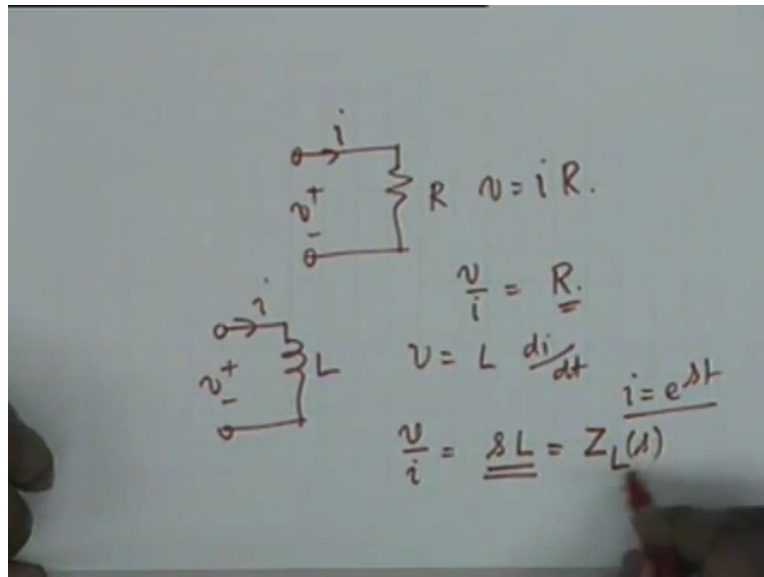 i
v + - R v = i R.
v/i = R.
i
v + - L v = L di/dt
i = e^st
v/i = sL = Z_L(s)